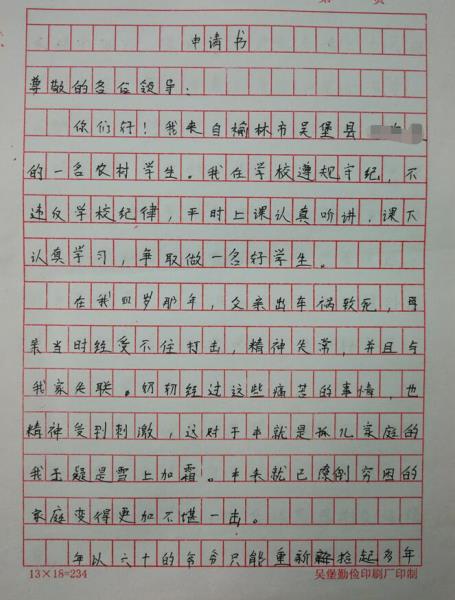 第 页
申请书
尊敬的各位领导：
你们好！我来自榆林市吴堡县
的一名农村学生。我在学校遵规守纪，不
违反学校纪律，平时上课认真听讲，课下
认真学习，争取做一名好学生。
在我四岁那年，父亲出车祸致死，母
亲当时经受不住打击，精神失常，并且与
我家失联。奶奶经过这些痛苦的事情，也
精神受到刺激，这对于本就是孤儿家庭的
我无疑是雪上加霜。本来就已潦倒穷困的
家庭变得更加不堪一击。
年以六十的爷爷只能重新拾起多年
13×18=234 吴堡勤俭印刷厂印制